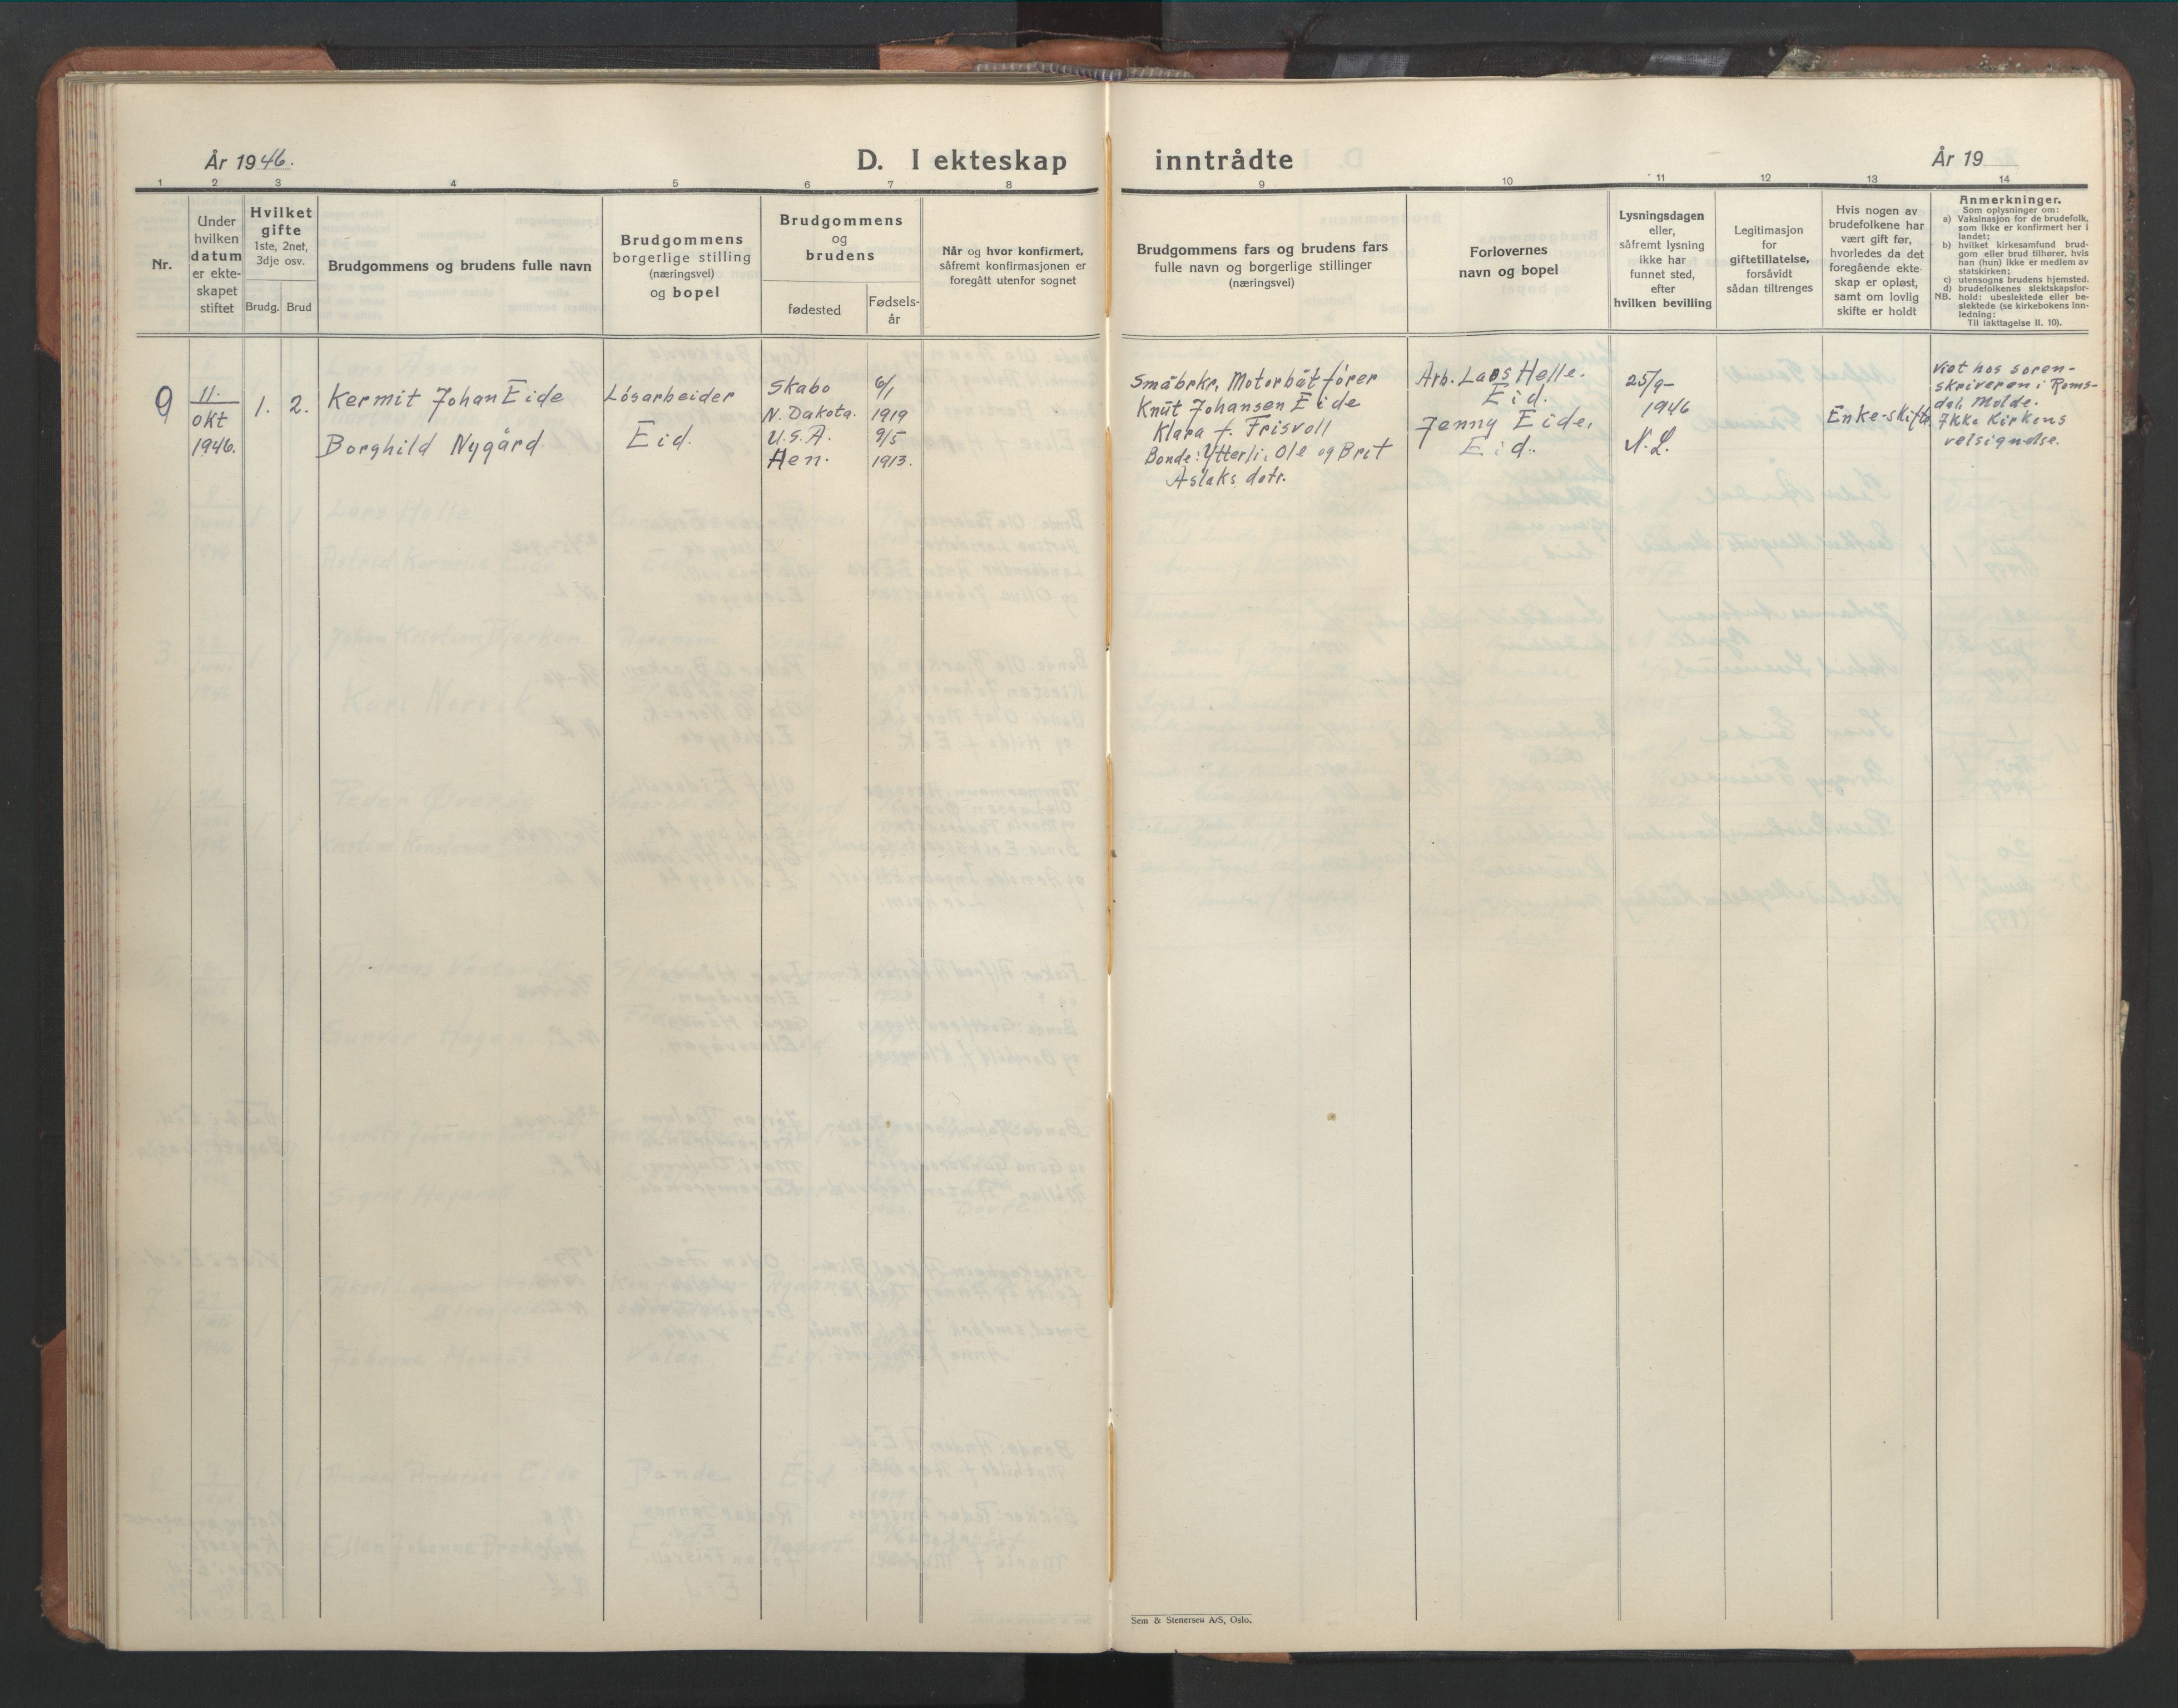 År 1946.
D. I ekteskap inntrådte
År 19
1 2 3 4 5 6 7 8 9 10 11 12 13 14
Nr.
Under
hvilken
datum
er ekte-
skapet
stiftet
Hvilket
gifte
1ste, 2net,
3dje osv.
Brudg. Brud
Brudgommens og brudens fulle navn
Brudgommens
borgerlige stilling
(næringsvei)
og bopel
Brudgommens
og
brudens
fødested
Fødsels-
år
Når og hvor konfirmert,
såfremt konfirmasjonen er
foregått utenfor sognet
Brudgommens fars og brudens fars
fulle navn og borgerlige stillinger
(næringsvei)
Forlovernes
navn og bopel
Lysningsdagen
eller,
såfremt lysning
ikke har
funnet sted,
efter
hvilken bevilling
Legitimasjon
for
giftetillatelse,
forsåvidt
sådan tiltrenges
Hvis nogen av
brudefolkene har
vært gift før,
hvorledes da det
foregående ekte-
skap er opløst,
samt om lovlig
skifte er holdt
Anmerkninger.
Som oplysninger om:
a) Vaksinasjon for de brudefolk,
som ikke er konfirmert her i
landet;
b) hvilket kirkesamfund brud-
gom eller brud tilhører, hvis
han (hun) ikke er medlem av
statskirken;
c) utensogns brudens hjemsted.
d) brudefolkenes slektskapsfor-
NB. hold: ubeslektede eller be-
slektede (se kirkebokens inn-
ledning:
Til iakttagelse II. 10).
9
11.
okt
1946.
1. 2.
Kermit Johan Eide
Borghild Nygård
Løsarbeider
Eid.
Skabo
N. Dakota.
U.S.A.
Hen.
6/1
1919
9/5
1913.
Småbrkr, Motorbåtfører
Knut Johansen Eide
Klara f. Frisvoll
Bonde: Ytterli, Ole og Brit
Aslaks dotr.
Arb. Lars Helle.
Eid.
Jenny Eide.
Eid.
25/9-
1946
N.L.
Enke-skifte
Viet hos soren-
skriveren i Roms-
dal, Molde.
Ikke Kirkens
velsignelse.
Sem & Stenersen A/S, Oslo.